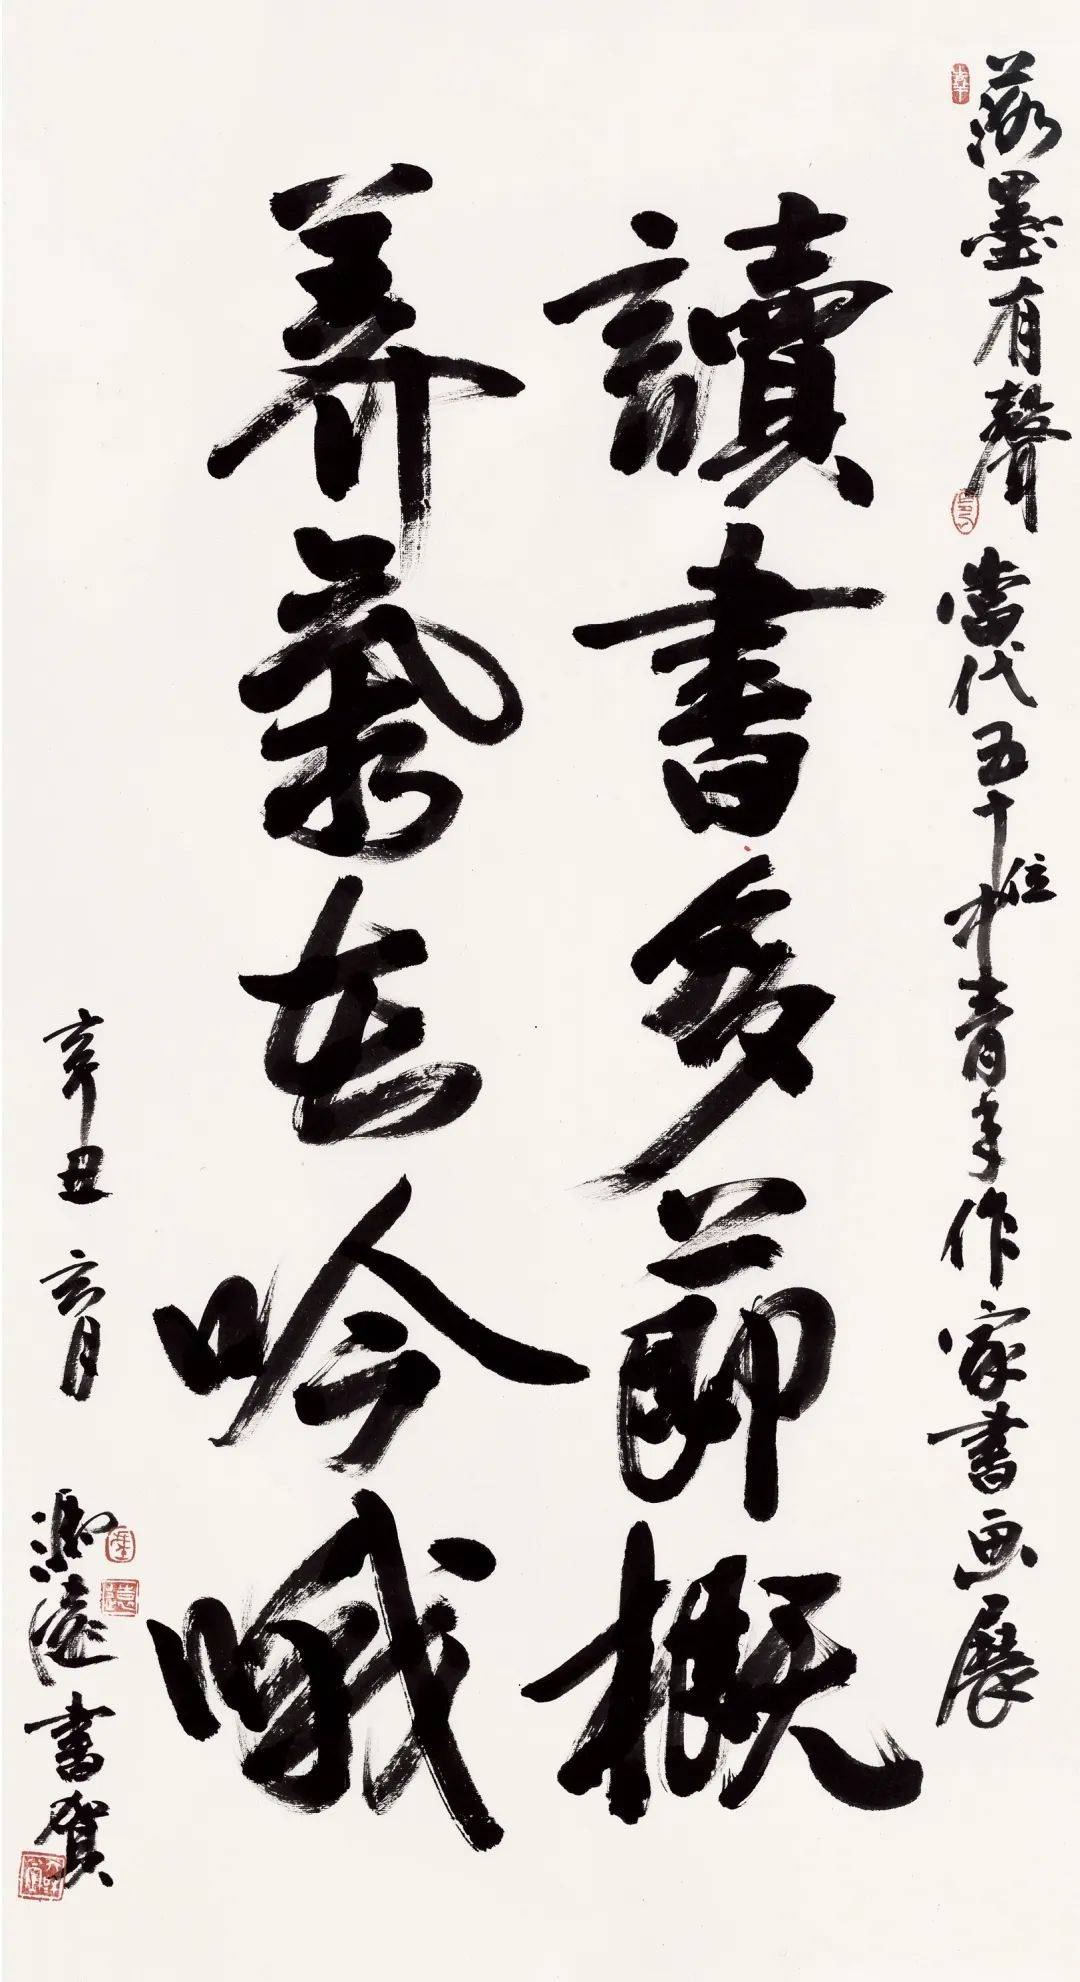 落墨有聲 當代五十位中青年作家書画展
讀書多節概
养氣在吟哦
辛丑 亥月 馮遠書賀